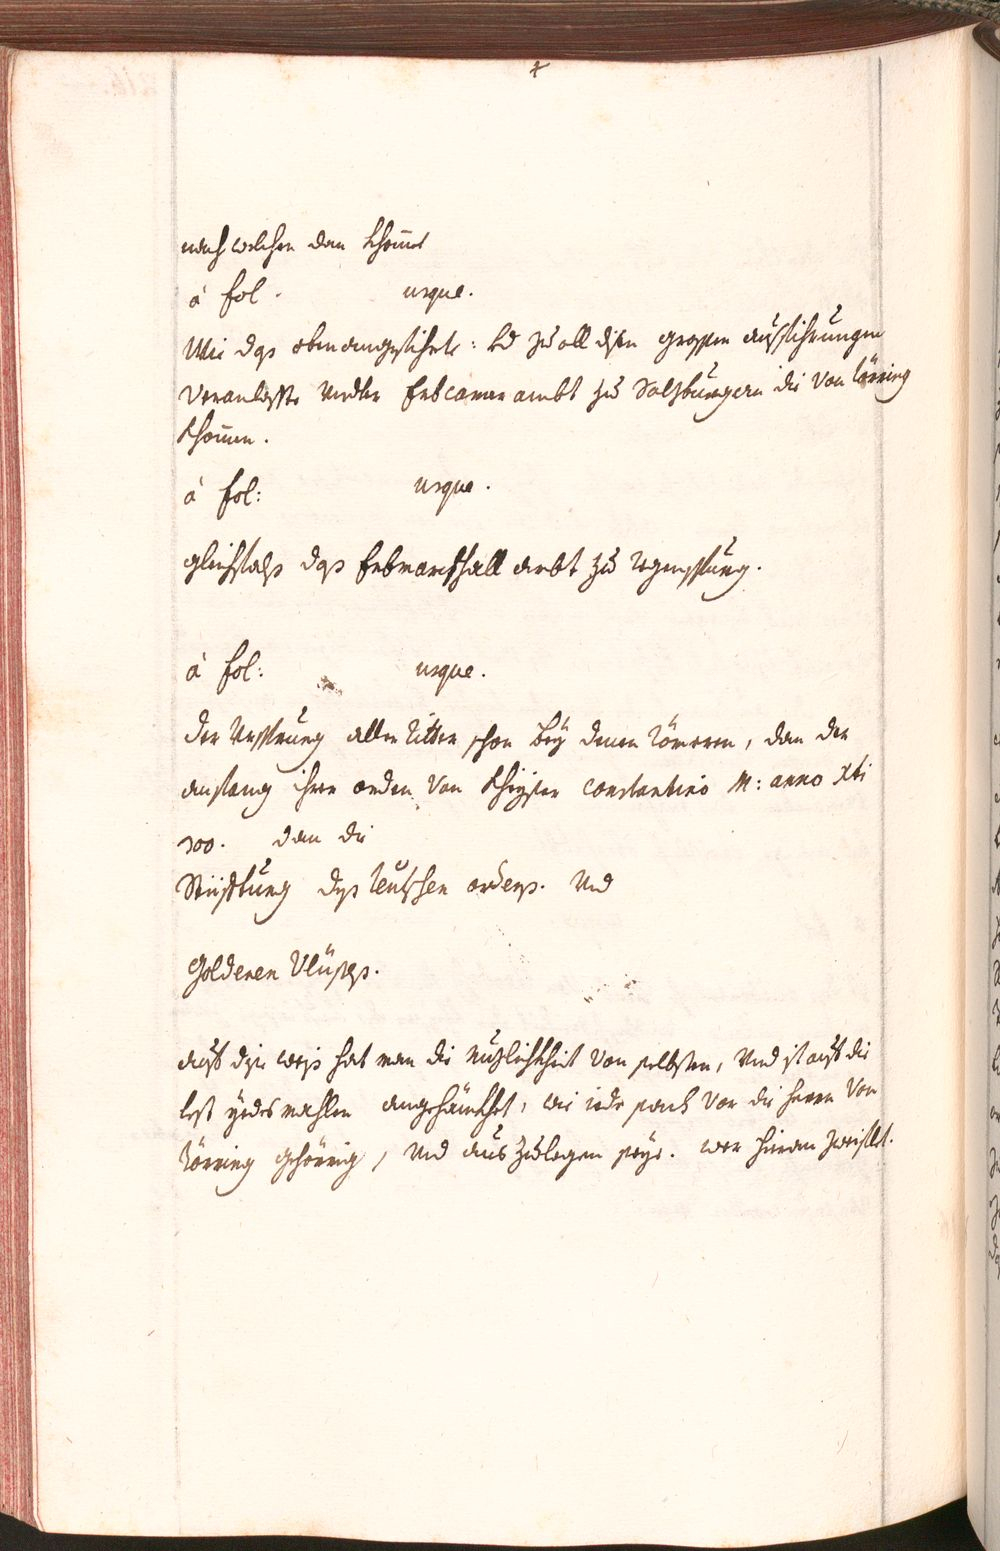 nach welchen dan khomt
à fol. usque.
Wie das obenangefihrte: zu all disen grossen ausfihrungen
Veranlaste Erbcamerambt zu Salzburg an die von Törring
khomen.
à fol: usque.
gleichfals das Erbmarschall ambt zu Regenspurg.
à fol: usque.
Der Ursprung aller Ritter schon bey denen Römeren, dan der
anfang ihrer orden von Kheyser constantino M: anno xti
300. dan die
Stüfftung des teutschen ordens. Und
Goldenen Vlüses.
auf dise weis hat man die nuzlichkheit von selbsten, Und ist auf die
lest yedesmahlen angehänkhet, wie iede sach vor die herrn von
Törring gehörrig, und auszulegen seye. wer hieran zweiflet.